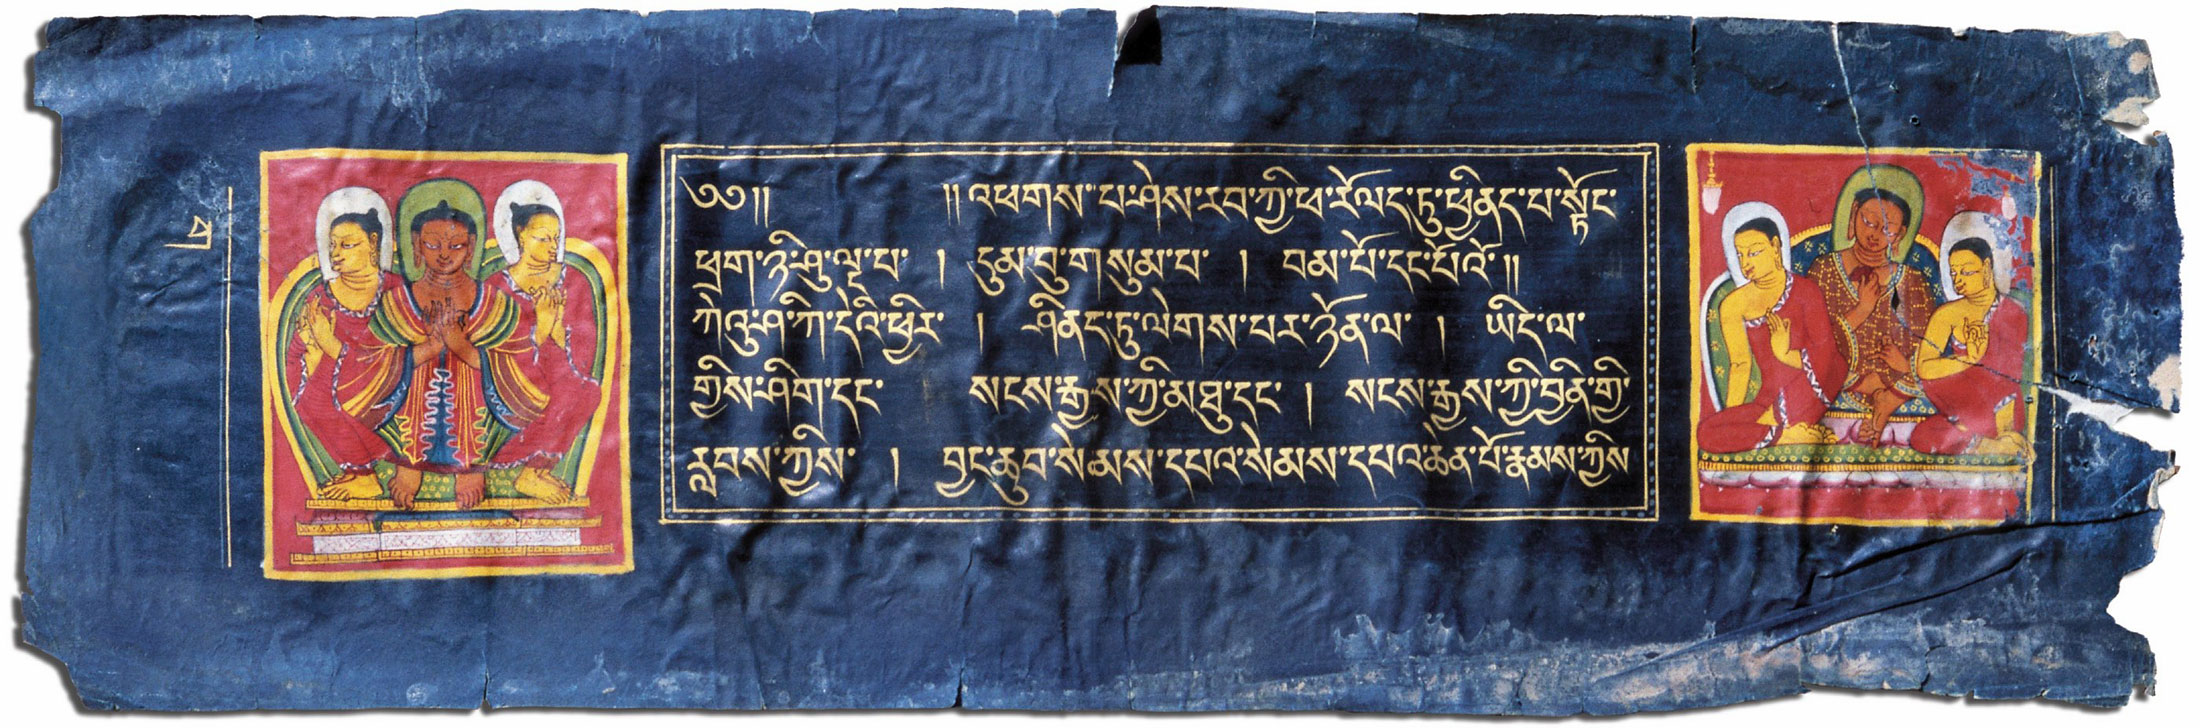 ༄༅།། །།འཕགས་པ་ཤེས་རབ་ཀྱི་ཕ་རོལད་ཏུ་ཕྱིནད་པ་སྟོང་
ཕྲག་ཉི་ཤུ་ལྔ་པ་ ། དུམ་བུ་གསུམ་པ་ ། བམ་པོ་དང་པོའོ་།།
ཀེའུ་ཤ་ཀི་དེའི་ཕྱིར་ ། ཤིནད་ཏུ་ལེགས་པར་ཉོན་ལ་ ། ཡིད་ལ་
གྱིས་ཤིག་དང་ སངས་རྒྱས་ཀྱི་མཐུ་དང་ ། སངས་རྒྱས་ཀྱི་བྱིན་གྱི་
རླབས་ཀྱིས་ ། བྱང་ཆུབ་སེམས་དཔའ་སེམས་དཔའ་ཆེན་པོ་རྣམས་ཀྱིས